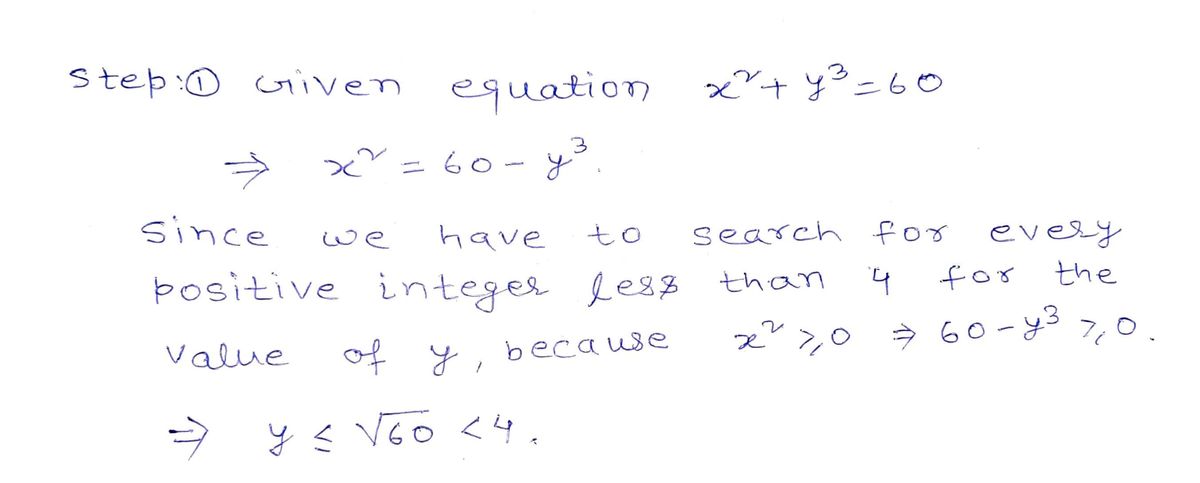 Step:① Given equation x² + y³ = 60
⇒ x² = 60 - y³.
Since we have to search for every
positive integer less than 4 for the
value of y, because x² ≥ 0 ⇒ 60 - y³ ≥ 0.
⇒ y ≤ √60 < 4.